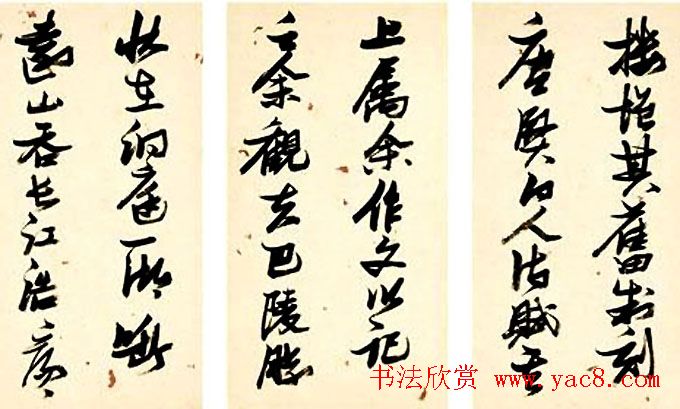 樓增其舊制刻
唐賢今人詩賦于
上屬余作文以記
之余觀夫巴陵勝
狀在洞庭一湖銜
遠山吞长江浩湯〻
书法欣赏 www.yac8.com